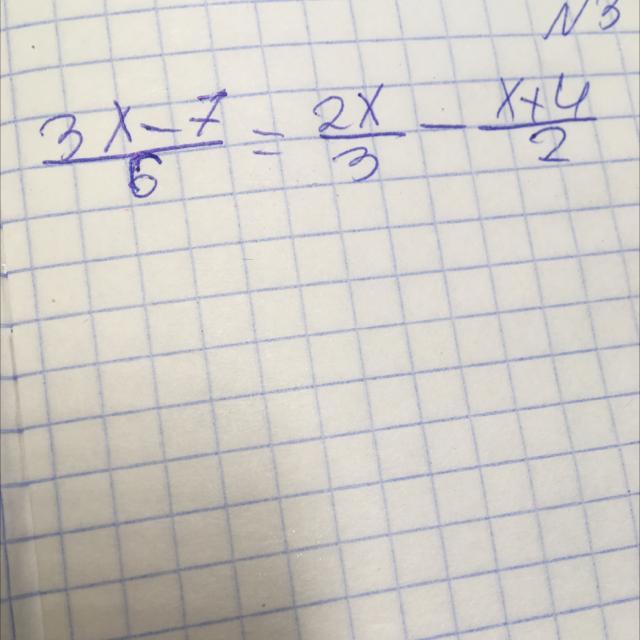 N3
3x-7/6 = 2x/3 - x+4/2